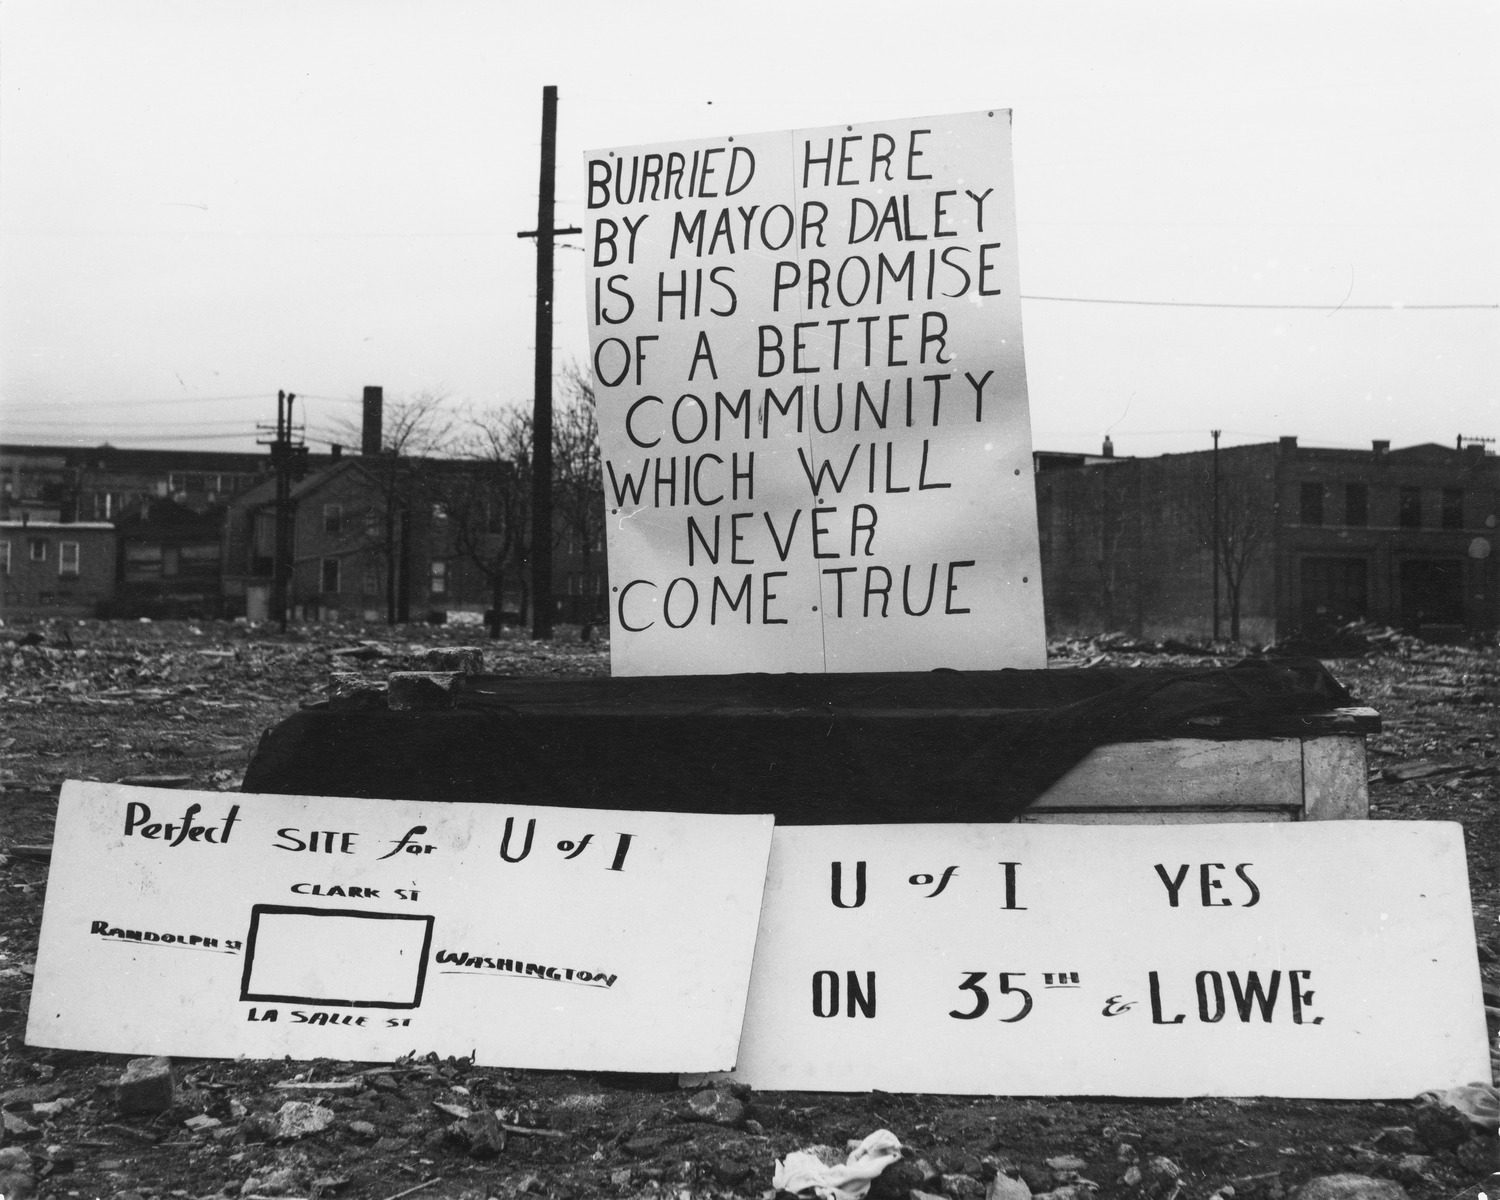 BURRIED HERE
BY MAYOR DALEY
IS HIS PROMISE
OF A BETTER
COMMUNITY
WHICH WILL
NEVER
COME TRUE
Perfect SITE for U of I
CLARK ST
RANDOLPH ST
WASHINGTON
LA SALLE ST
U of I YES
ON 35TH & LOWE